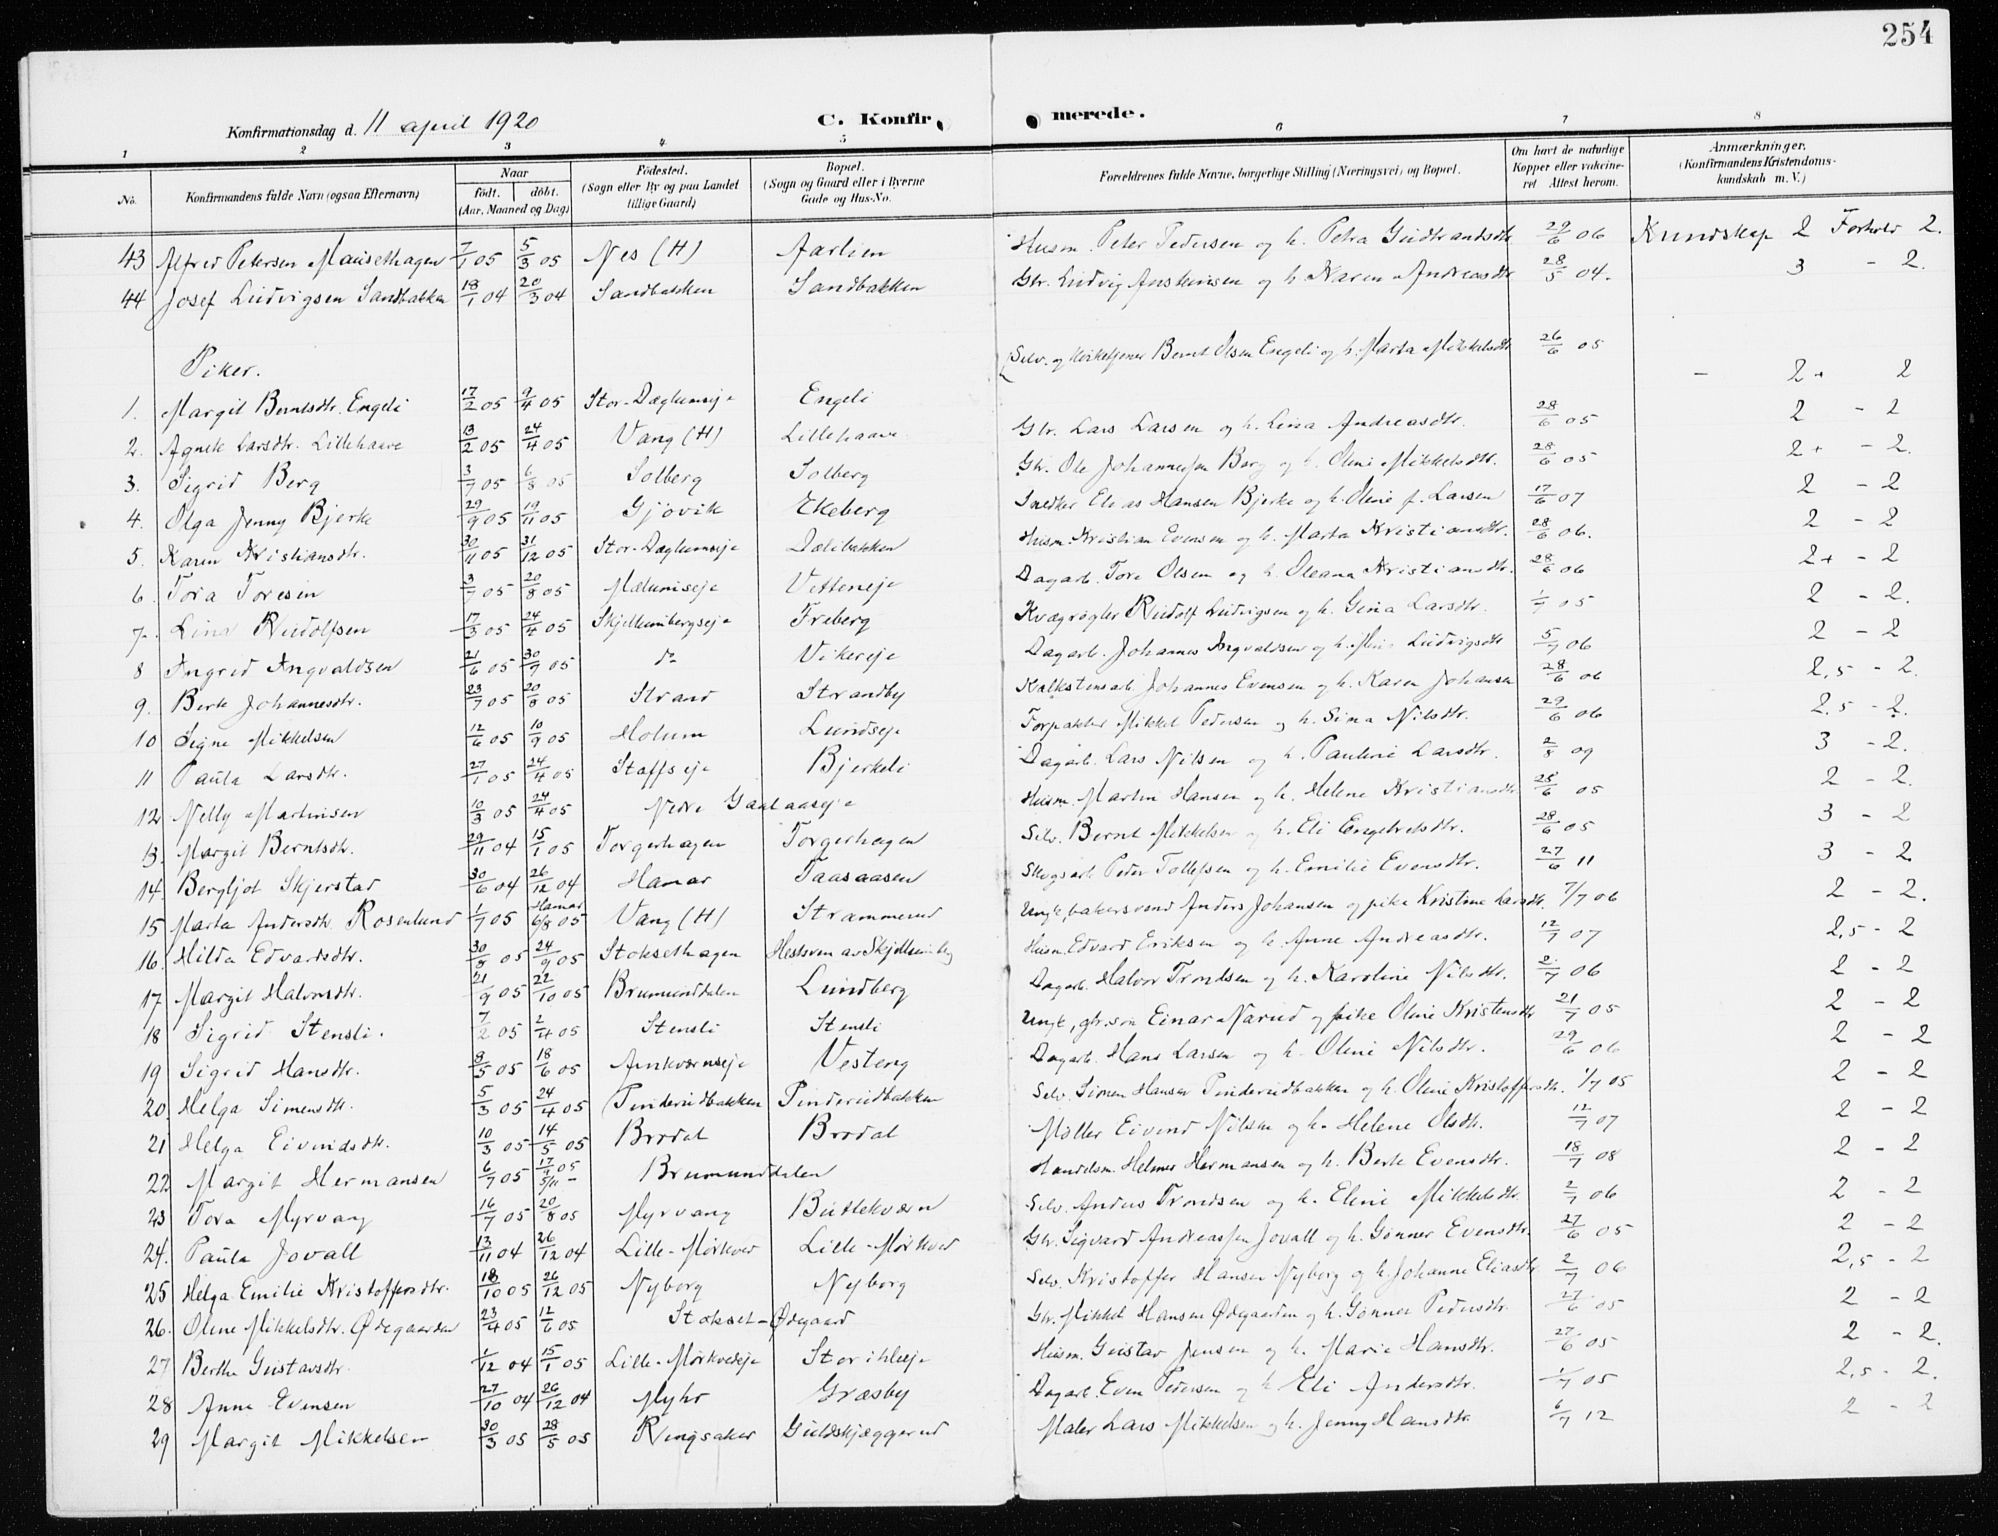 254
Konfirmationsdag d. 11 april 1920 C. Konfirmerede.
1 2 3 4 5 6 7 8
No. Konfirmandens fulde Navn (ogsaa Efternavn) Naar født. døbt. (Aar, Maaned og Dag) Fødested. (Sogn eller By og paa Landet tillige Gaard) Bopæl. (Sogn og Gaard eller i Byerne Gade og Hus-No. Forældrenes fulde Navne, borgerlige Stilling (Næringsvei) og Bopæl. Om havt de naturlige Kopper eller vakcineret Attest herom. Anmærkninger. (Konfirmandens Kristendomskundskab m. V.)
43 Alfred Petersen Mausethagen 7/1 05 5/3 05 Nes (H) Aarlien Husm. Peter Pedersen og h. Petra Gudbrandsdtr 29/6 06 Kundskap 2 Forhold 2.
44 Josef Ludvigsen Sandbakken 18/1 04 20/3 04 Sandbakken Sandbakken Gbr. Ludvig Anskinsen og h. Karen Andreasdtr 28/5 04. 3 - 2.
Piker.
1. Margit Berntsdtr. Engeli 17/2 05 9/4 05 Stor-Dæglumseje Engeli Selv. og kirketjener Bernt Olsen Engeli og h. Marta Mikkelsdtr 26/6 05 - 2+ 2
2. Agnete Larsdtr. Lillehaave 13/2 05 24/4 05 Vang (H) Lillehaave Gbr. Lars Larsen og h. Lina Andreasdtr. 28/6 05 2 - 2
3. Sigrid Berg 3/7 05 6/8 05 Solberg Solberg Gbr. Ole Johannessen Berg og h. Oline Mikkelsdtr. 28/6 05 2+ - 2.
4. Olga Jenny Bjerke 29/9 05 19/11 05 Gjøvik Ekeberg Snedker Elias Hansen Bjerke og h. Oline f. Larsen 17/6 07 2 - 2
5. Karen Kristiansdtr. 30/11 05 31/12 05 Stor-Dæglumseje Dælibakken Husm. Kristian Evensen og h. Marta Kristiansdtr. 28/6 06. 2 - 2
6. Tora Toresen 3/7 05 20/8 05 Mælumseje Velteneje Dagarb. Tore Olsen og h. Oleana Kristiansdtr. 28/6 06 2+ - 2
7. Lina Rudolfsen 17/3 05 24/4 05 Skjellumbergseje Freberg Kvægrøgter Rudolf Ludvigsen og h. Gina Larsdtr. 1/7 05 2 - 2.
8 Ingrid Ingvaldsen 21/6 05 30/7 05 do Vikereje Dagarb. Johannes Ingvaldsen og h. Ludvigsdtr 5/7 06 2 - 2
9. Berte Johannesdtr. 23/7 05 20/8 05 Strand Strandby Kalkstensarb. Johannes Evensen og h. Karen Johansen 28/6 06 2,5 - 2.
10 Signe Mikkelsen 12/6 05 10/9 05 Holum Lundseje Forpakter Mikkel Pedersen og h. Sina Nilsdtr. 29/6 06 2,5 - 2.
11 Paula Larsdtr. 27/1 05 24/4 05 Staffseje Bjerkeli Dagarb. Lars Nilsen og h. Pauline Larsdtr. 2/8 09 3 - 2.
12 Nelly Martinsen 10/3 05 24/4 05 Nedre Gaalaaseje Husm. Martin Hansen og h. Helene Kristiansdtr 28/6 05 2 - 2.
13. Margit Berntsdtr. 29/11 04 15/1 05 Torgerhagen Torgerhagen Selv. Bernt Mikkelsen og h. Eli Engebretsdtr. 28/6 05 3 - 2
14. Bergljot Skjerstad 30/6 04 26/12 04 Hamar Taasaasen Skogsarb. Peder Tollefsen og h. Emilie Evensdtr. 27/6 11 3 - 2
15 Marta Andersdtr. Rosenlund 1/7 05 Hamar 6/8 05 Vang (H) Strammerud Ungk, bakersvend Anders Johansen og pike Kristine Larsdtr. 7/7 06 2 - 2.
16. Hilda Edvardsdtr. 30/8 05 24/9 05 Stoksethagen Hestsven av Skjellumbg Husm. Edvard Eriksen og h. Anne Andreasdtr. 12/7 07 2,5 - 2
17. Margit Halvorsdtr. 21/9 05 22/10 05 Brumunddalen Lundberg Dagarb. Halvor Trondsen og h. Karoline Nilsdtr. 2/7 06 2 - 2
18 Sigrid Stensli. 7/2 05 2/4 05 Stensli Stensli Ungk, gbr.søn Einar Narud og pike Oline Kristensdtr 21/7 05 2 - 2
19 Sigrid Hansdtr. 8/5 05 18/6 05 Amkværnseje Vesteng Dagarb. Hans Larsen og h. Oline Nilsdtr. 29/6 06 2 - 2
20. Helga Simensdtr. 5/3 05 24/4 05 Pinderudbakken Pinderudbakken Selv. Simen Hansen Pinderudbakken og h. Oline Kristoffersdtr. 1/7 05 2 - 2
21 Helga Eivindsdtr. 10/3 05 14/5 05 Brodal Brodal Møller Eivind Nilsen og h. Helene Olsdtr. 12/7 07 2 - 2
22 Margit Hermansen 6/7 05 17/9 05 5/11 - Brumunddalen Handelsm. Helmer Hermansen og h. Berte Evensdtr. 18/7 08 2 - 2
23 Tora Myrvang 16/7 05 20/8 05 Myrvang Butlekværn Selv. Anders Trondsen og h. Eline Mikkelsdtr. 2/7 06 2 - 2
24. Paula Jovall 13/11 04 26/12 04 Lille-Mørkved Lille-Mørkved Gbr. Sigvard Andreassen Jovall og h. Gunner Evensdtr. 27/6 05 2 - 2
25 Helga Emilie Kristoffersdtr. 18/10 05 26/12 05 Nyborg Nyborg Selv. Kristoffer Hansen Nyborg og h. Johanne Eliasdtr 2/7 06 2,5 - 2
26. Oline Mikkelsdtr. Ødegaarden 23/4 05 12/6 05 Stokset-Ødegaard Gbr. Mikkel Hansen Ødegaarden og h. Gunner Pedersdtr. 27/6 05 2 - 2
27 Berthe Gustavsdtr. 1/12 04 15/1 05 Lille-Mørkvedeje Storihleje Husm. Gustav Jensen og h. Marie Hansdtr. 27/6 05 2 - 2.
28 Anne Evensen 27/10 04 26/12 04 Myhr Græsby Dagarb. Even Pedersen og h. Eli Andersdtr. 1/7 05 2,5 - 2.
29 Margit Mikkelsen 30/3 05 28/5 05 Ringsaker Guldskjæggerud Maler Lars Mikkelsen og h. Jenny Hansdtr. 6/7 12 2 - 2